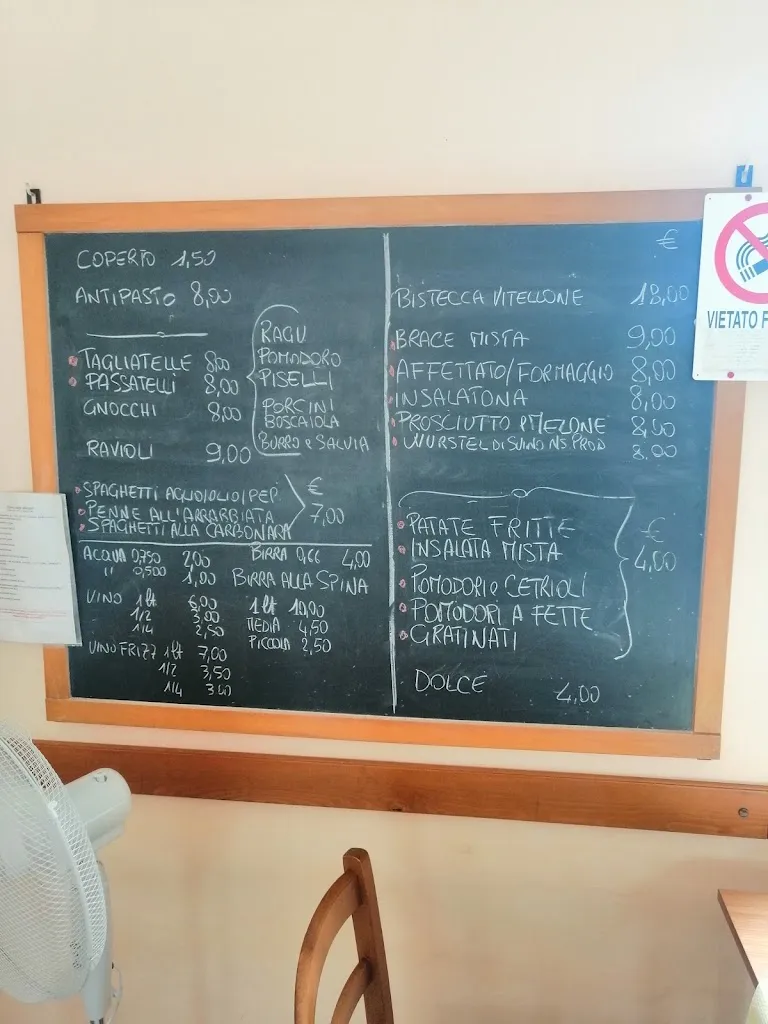 COPERTO 1,50
ANTIPASTO 8,00
TAGLIATELLE 8,00
PASSATELLI 8,00
GNOCCHI 8,00
RAVIOLI 9,00
RAGU
POMODORO
PISELLI
PORCINI
BOSCAIOLA
BURRO e SALVIA
SPAGHETTI AGLIO/OLIO/PEP
PENNE ALL'ARRABBIATA
SPAGHETTI ALLA CARBONARA
€
7,00
ACQUA 0,750 2,00
" 0,500 1,00
VINO 1 lt 6,00
1/2 3,00
1/4 2,50
VINO FRIZZ 1 lt 7,00
1/2 3,50
1/4 3,00
BIRRA 0,66 4,00
BIRRA ALLA SPINA
1 lt 10,00
MEDIA 4,50
PICCOLA 2,50
€
BISTECCA VITELLONE 18,00
BRACE MISTA 9,00
AFFETTATO/FORMAGGIO 8,00
INSALATONA 8,00
PROSCIUTTO e MELONE 8,00
WURSTEL DI SUINO NS. PROD 8,00
PATATE FRITTE
INSALATA MISTA
POMODORI e CETRIOLI
POMODORI A FETTE
GRATINATI
€
4,00
DOLCE 4,00
VIETATO F